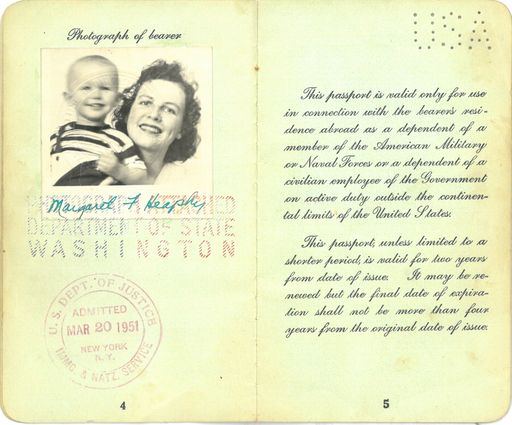 Photograph of bearer
Margaret F Heaphy
DEPARTMENT OF STATE
WASHINGTON
U. S. DEPT. OF JUSTICE
ADMITTED
MAR 20 1951
NEW YORK
N. Y.
IMMG. & NATZ. SERVICE
4
USA
This passport is valid only for use
in connection with the bearer's resi-
dence abroad as a dependent of a
member of the American Military
or Naval Forces or a dependent of a
civilian employee of the Government
on active duty outside the continen-
tal limits of the United States.
This passport, unless limited to a
shorter period, is valid for two years
from date of issue. It may be re-
newed but the final date of expira-
tion shall not be more than four
years from the original date of issue.
5